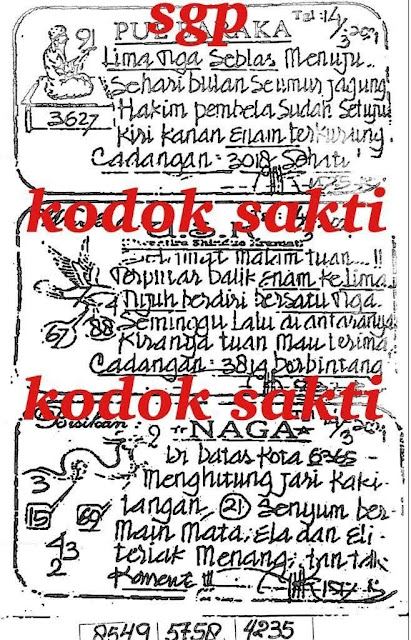 sgp
PUL RARAKA
Tel: 14/3 2011
91
3627
Lima Nga Seblas Menuju..
Sehari bulan Seumur jagung
Hakim pembela Sudah Setuju
Kiri kanan Enam terkurung.
Cadangan: 3018 Sehati
kodok sakti
Selamat malam tuan...!!
Terputar balik Enam ke lima
Tujuh berdiri bersatu Nga
67 88
Seminggu lalu di antaranya
Kiranya tuan mau terima
Cadangan: 3819 berbintang
kodok sakti
Bisikan:
NAGA
14/3 2011
2
Di batas kota 6365 -
3
Menghitung jari Kaki -
15 69
tangan, (21) Senyum ber-
Main Mata, Ela dan Eli -
43
2
teriak Menang, tan tak
Koment !!!
8549 5758 4235